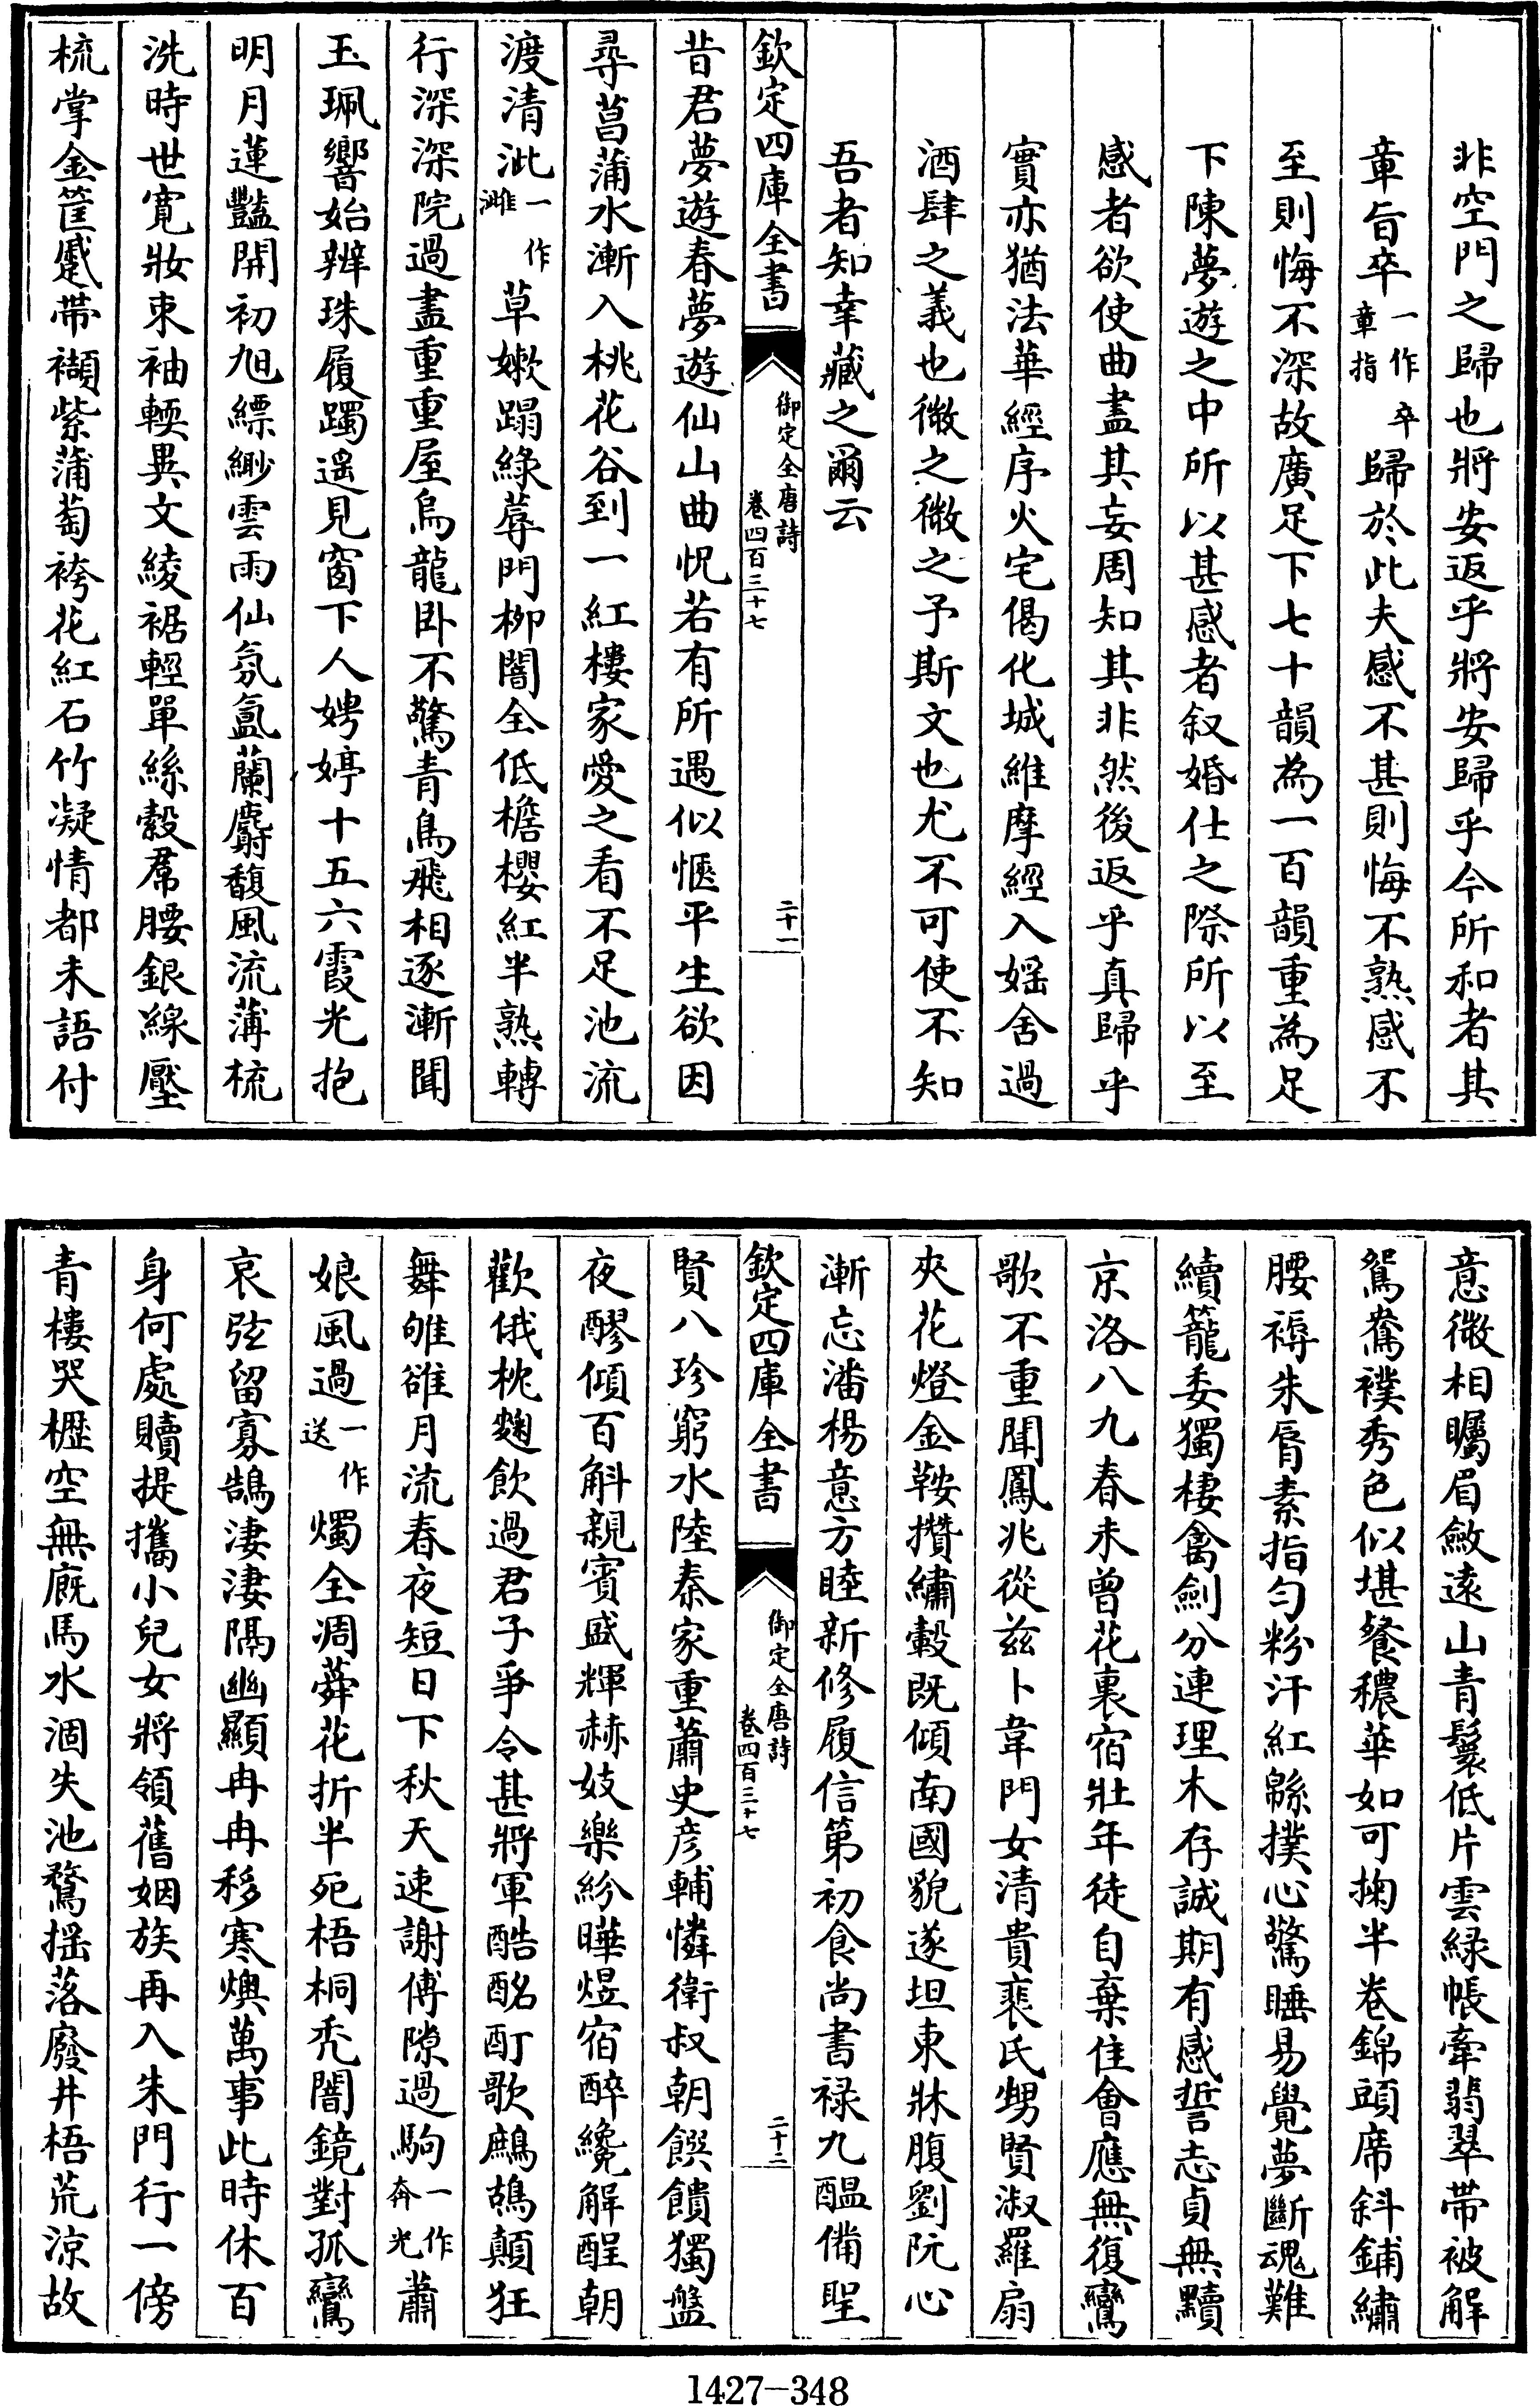 非空門之歸也將安返乎將安歸乎今所和者其
章旨卒一作卒章指歸於此夫感不甚則悔不熟感不
至則悔不深故廣足下七十韻為一百韻重為足
下陳夢遊之中所以甚感者叙婚仕之際所以至
感者欲使曲盡其妄周知其非然後返乎真歸乎
實亦猶法華經序火宅偈化城維摩經入婬舍過
酒肆之義也微之微之予斯文也尤不可使不知
吾者知幸藏之爾云
欽定四庫全書 御定全唐詩 卷四百三十七 二十一
昔君夢遊春夢遊仙山曲怳若有所遇似愜平生欲因
尋菖蒲水漸入桃花谷到一紅樓家愛之看不足池流
渡清泚一作濰草嫩蹋綠蓐門柳闇全低檐櫻紅半熟轉
行深深院過盡重重屋烏龍卧不驚青鳥飛相逐漸聞
玉珮響始辨珠履躅遥見窗下人娉婷十五六霞光抱
明月蓮豔開初旭縹緲雲雨仙氛氲蘭麝馥風流薄梳
洗時世寛妝束袖輭異文綾裾輕單絲縠帬腰銀線壓
梳掌金筐蹙帶襭紫蒲萄袴花紅石竹凝情都未語付
意微相矚眉斂遠山青鬟低片雲緑帳牽翡翠帶被解
鴛鴦襆秀色似堪餐穠華如可掬半卷錦頭席斜鋪繡
腰褥朱脣素指勻粉汗紅緜撲心驚睡易覺夢斷魂難
續籠委獨棲禽劍分連理木存誠期有感誓志貞無黷
京洛八九春未曾花裏宿壯年徒自棄佳會應無復鸞
歌不重聞鳳兆從兹卜韋門女清貴裴氏甥賢淑羅扇
夾花燈金鞍攢繡轂既傾南國貌遂坦東牀腹劉阮心
漸忘潘楊意方睦新修履信第初食尚書禄九醖備聖
欽定四庫全書 御定全唐詩 卷四百三十七 二十二
賢八珍窮水陸秦家重蕭史彦輔憐衛叔朝饌饋獨盤
夜醪傾百斛親賓盛輝赫妓樂紛曄煜宿醉纔解酲朝
歡俄枕麴飲過君子爭令甚將軍酷酩酊歌鷓鴣顛狂
舞鴝鵒月流春夜短日下秋天速謝傅隙過駒一作奔光蕭
娘風過一作送燭全凋蕣花折半死梧桐秃闇鏡對孤鸞
哀弦留寡鵠淒淒隔幽顯冉冉移寒燠萬事此時休百
身何處贖提攜小兒女將領舊姻族再入朱門行一傍
青樓哭櫪空無廐馬水涸失池鶩摇落廢井梧荒涼故
1427-348